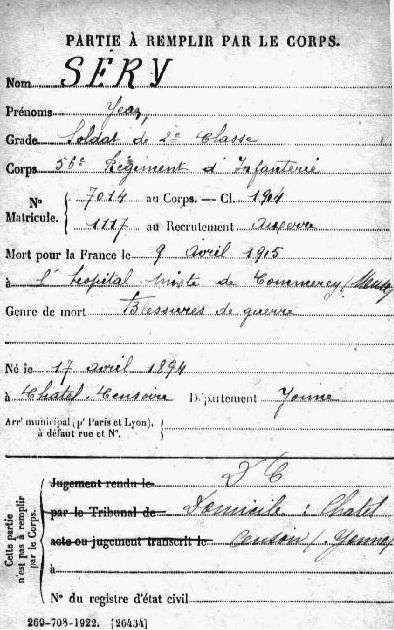 PARTIE À REMPLIR PAR LE CORPS.
Nom SERV
Prénoms Jean,
Grade Soldat de 2e Classe
Corps 56e Régiment d'Infanterie
N° Matricule. { 7014 au Corps. — Cl. 1904
1117 au Recrutement Auxerre
Mort pour la France le 9 avril 1905
à l'hopital mixte de Commercy (Meuse)
Genre de mort Blessures de guerre
Né le 17 avril 1894
à Chatel-Censoire Département Yonne
Arrt municipal (pr Paris et Lyon), à défaut rue et N°.
Cette partie n'est pas à remplir par le Corps.
Jugement rendu le D C
par le Tribunal de Domicile : Chatel
acte ou jugement transcrit le Censoir (Yonne)
à
N° du registre d'état civil
269-708-1922. [26434]